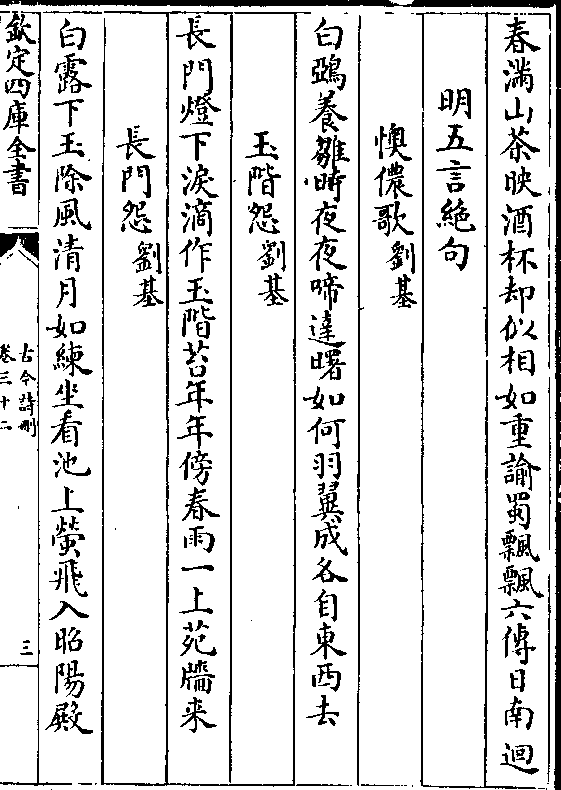 春滿山茶映酒杯却似相如重諭蜀飄飄六傳日南迴
明五言絶句
懊儂歌劉基
白鵶養雛時夜夜啼達曙如何羽翼成各自東西去
玉階怨劉基
長門燈下淚滴作玉階苔年年傍春雨一上苑牆来
長門怨劉基
白露下玉除風清月如練坐看池上螢飛入昭陽殿
欽定四庫全書
古今詩刪
卷三十二
三